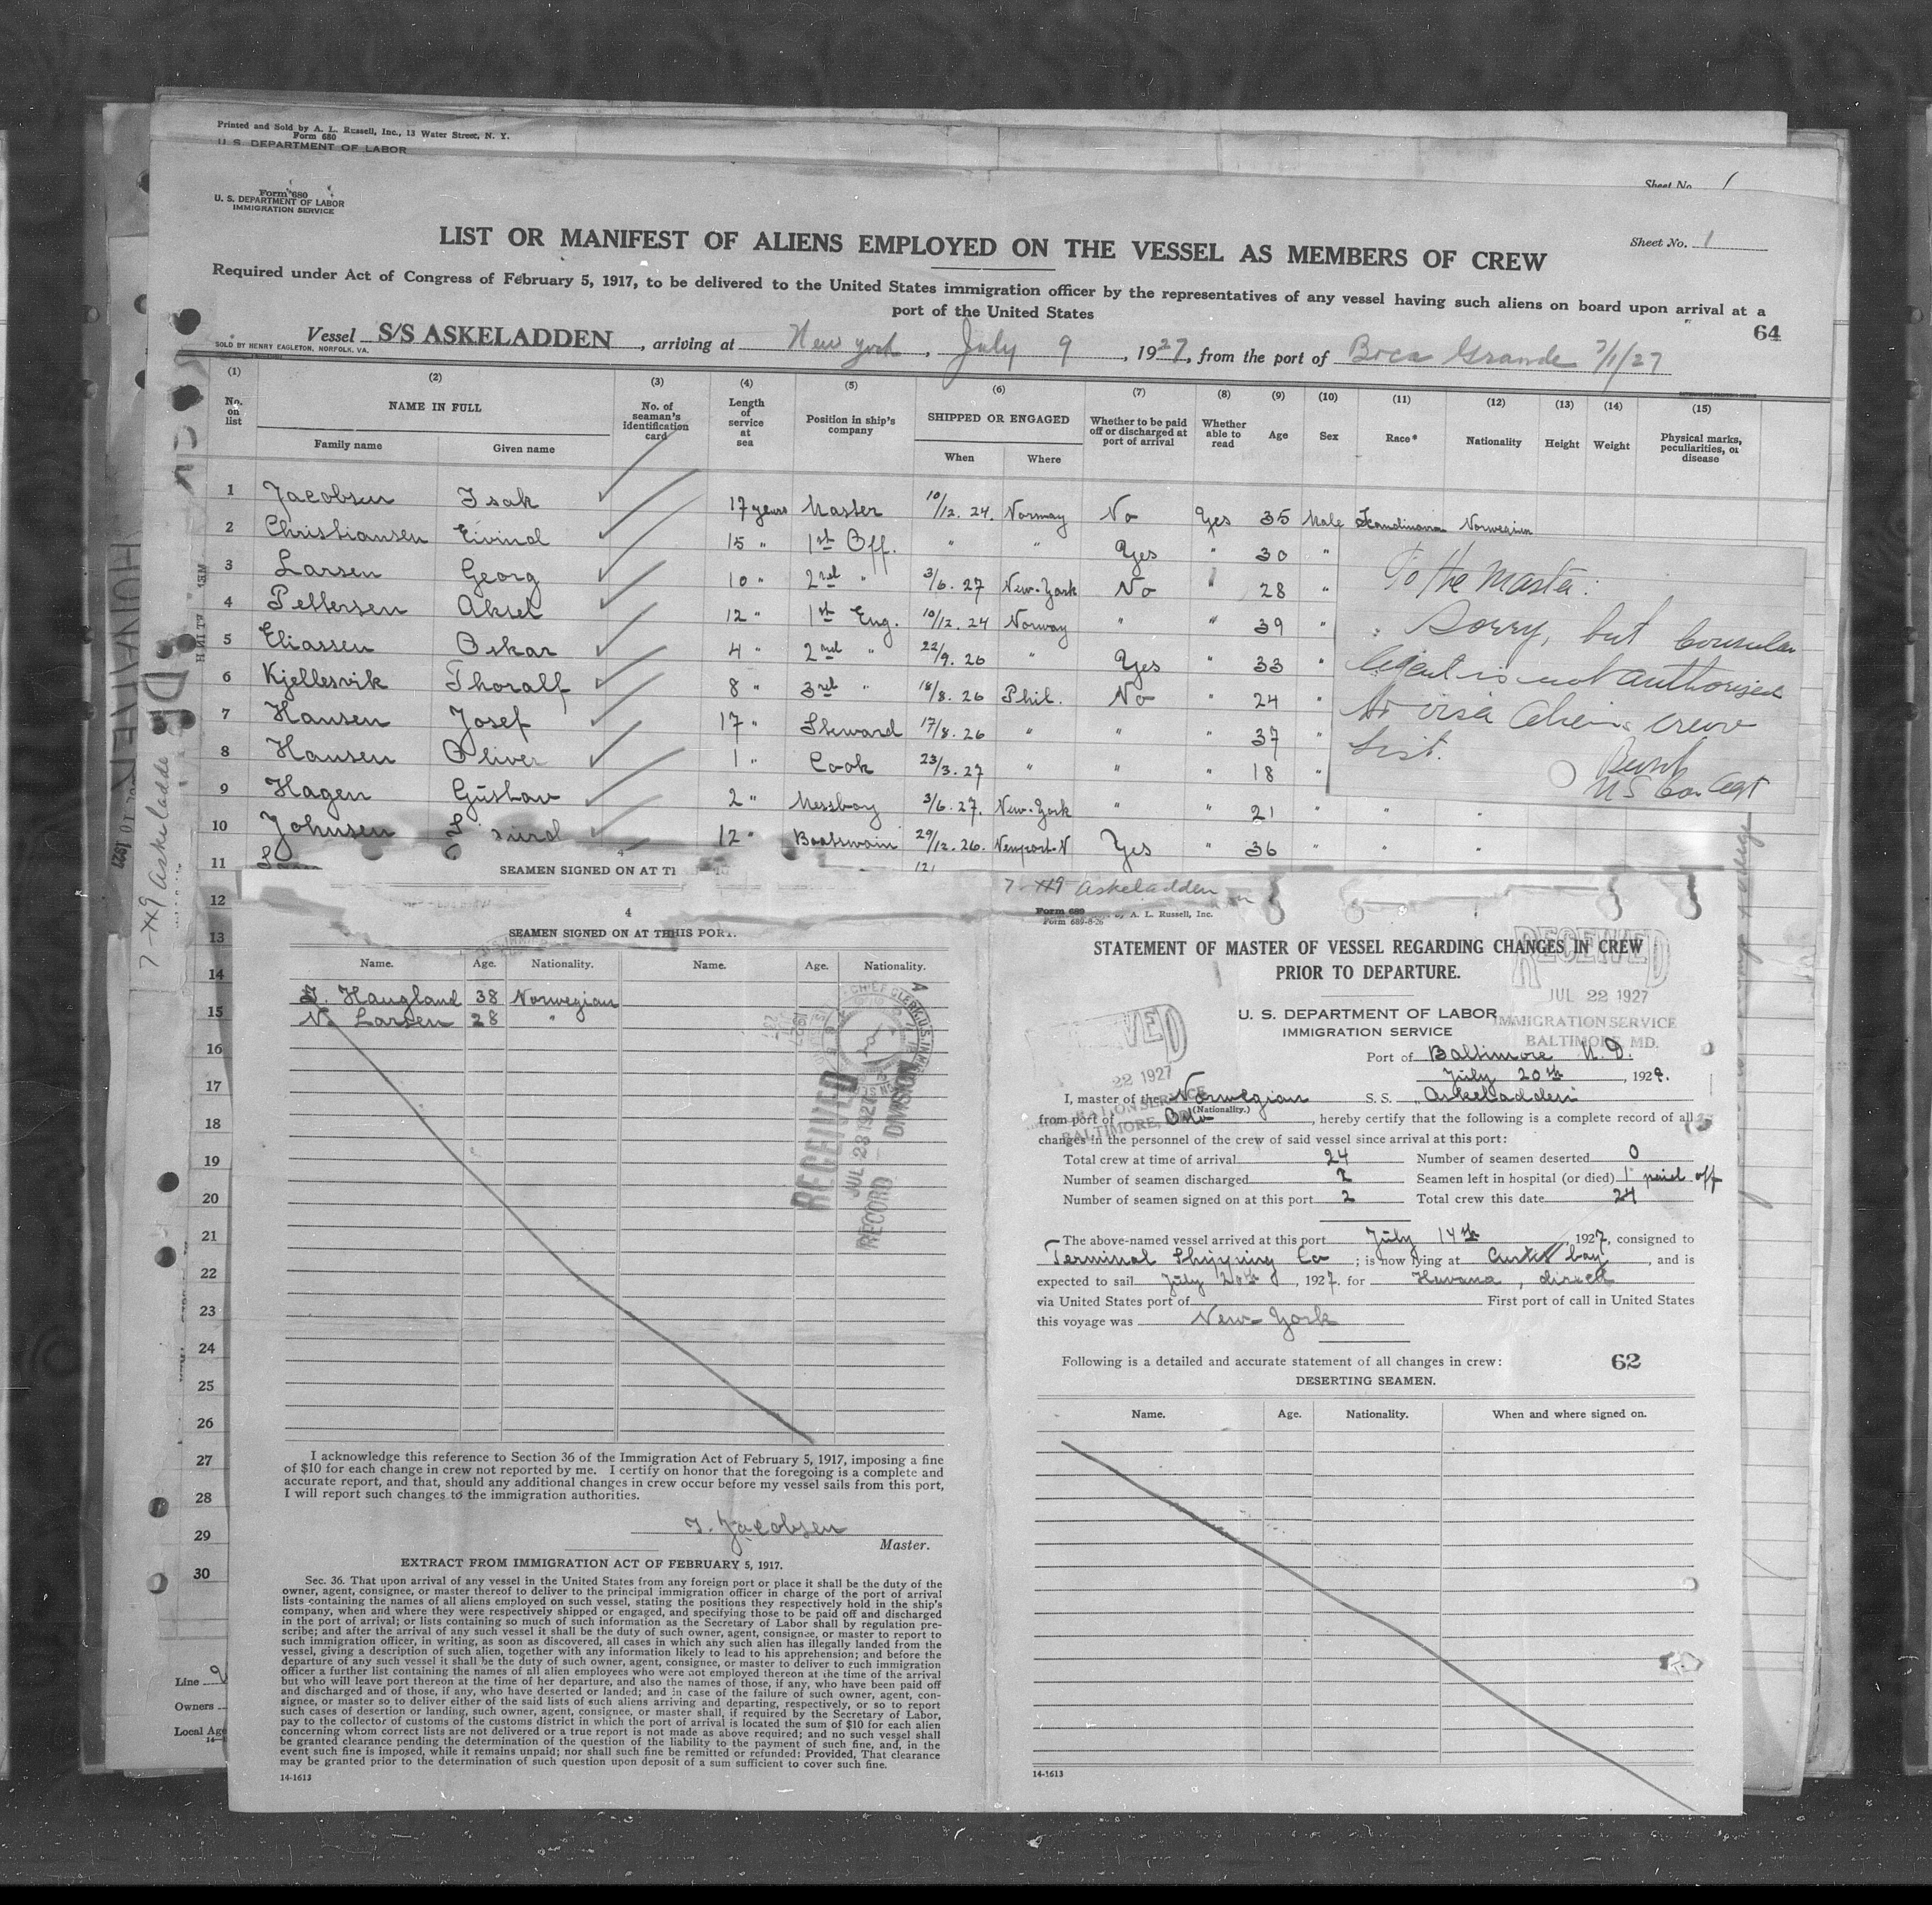 Printed and Sold by A. L. Russell, Inc., 13 Water Street, N. Y.
Form 680
U. S. DEPARTMENT OF LABOR
Sheet No. 1
Form 680
U. S. DEPARTMENT OF LABOR
IMMIGRATION SERVICE
LIST OR MANIFEST OF ALIENS EMPLOYED ON THE VESSEL AS MEMBERS OF CREW
Sheet No. 1
Required under Act of Congress of February 5, 1917, to be delivered to the United States immigration officer by the representatives of any vessel having such aliens on board upon arrival at a
port of the United States
64
Vessel S/S ASKELADDEN, arriving at New York, July 9, 1927, from the port of Boca Grande 7/1/27
SOLD BY HENRY EAGLETON, NORFOLK, VA.
(1) (2) (3) (4) (5) (6) (7) (8) (9) (10) (11) (12) (13) (14) (15)
No. on list NAME IN FULL Family name Given name No. of seaman's identification card Length of service at sea Position in ship's company SHIPPED OR ENGAGED When Where Whether to be paid off or discharged at port of arrival Whether able to read Age Sex Race* Nationality Height Weight Physical marks, peculiarities, or disease
1 Jacobsen Isak 17 years Master 10/12. 24. Norway No Yes 35 Male Scandinavn Norwegian
2 Christiansen Eivind 15 " 1st Off. " " Yes " 30 "
3 Larsen Georg 10 " 2nd " 3/6. 27 New-York No " 28 "
4 Pettersen Aksel 12 " 1st Eng. 10/12. 24 Norway " " 39 "
5 Eliassen Oskar 4 " 2nd " 22/9. 26 " Yes " 33 "
6 Kjellesvik Thoralf 8 " 3rd " 18/8. 26 Phil. No " 24 "
7 Hansen Josef 17 " Steward 17/8. 26 " " " 37 "
8 Hansen Oliver 1 " Cook 23/3. 27 " " " 18 "
9 Hagen Gustav 2 " Messboy 3/6. 27. New-York " " 21 " " "
10 Johnsen 12 " Boatswain 29/12. 26. Newport-N Yes " 36 " " "
11
To the Master:
Sorry, but Consular
Agent is not authorized
to visa Alien crew
List.
US Con Agt
7-449 Askeladden
12
13
14
15
16
17
18
19
20
21
22
23
24
25
26
27
28
29
30
Line
Owners
Local Age
SEAMEN SIGNED ON AT TH
4
SEAMEN SIGNED ON AT THIS PORT.
Name. Age. Nationality. Name. Age. Nationality.
T. Haugland 38 Norwegian
N. Larsen 28 "
RECEIVED
JUL 23 1927
RECORD DIVISION
I acknowledge this reference to Section 36 of the Immigration Act of February 5, 1917, imposing a fine
of $10 for each change in crew not reported by me. I certify on honor that the foregoing is a complete and
accurate report, and that, should any additional changes in crew occur before my vessel sails from this port,
I will report such changes to the immigration authorities.
I. Jacobsen
Master.
EXTRACT FROM IMMIGRATION ACT OF FEBRUARY 5, 1917.
Sec. 36. That upon arrival of any vessel in the United States from any foreign port or place it shall be the duty of the
owner, agent, consignee, or master thereof to deliver to the principal immigration officer in charge of the port of arrival
lists containing the names of all aliens employed on such vessel, stating the positions they respectively hold in the ship's
company, when and where they were respectively shipped or engaged, and specifying those to be paid off and discharged
in the port of arrival; or lists containing so much of such information as the Secretary of Labor shall by regulation pre-
scribe; and after the arrival of any such vessel it shall be the duty of such owner, agent, consignee, or master to report to
such immigration officer, in writing, as soon as discovered, all cases in which any such alien has illegally landed from the
vessel, giving a description of such alien, together with any information likely to lead to his apprehension; and before the
departure of any such vessel it shall be the duty of such owner, agent, consignee, or master to deliver to such immigration
officer a further list containing the names of all alien employees who were not employed thereon at the time of the arrival
but who will leave port thereon at the time of her departure, and also the names of those, if any, who have been paid off
and discharged and of those, if any, who have deserted or landed; and in case of the failure of such owner, agent, con-
signee, or master so to deliver either of the said lists of such aliens arriving and departing, respectively, or so to report
such cases of desertion or landing, such owner, agent, consignee, or master shall, if required by the Secretary of Labor,
pay to the collector of customs of the customs district in which the port of arrival is located the sum of $10 for each alien
concerning whom correct lists are not delivered or a true report is not made as above required; and no such vessel shall
be granted clearance pending the determination of the question of the liability to the payment of such fine, and, in the
event such fine is imposed, while it remains unpaid; nor shall such fine be remitted or refunded: Provided, That clearance
may be granted prior to the determination of such question upon deposit of a sum sufficient to cover such fine.
14-1613
7-449 Askeladden
Form 689
by A. L. Russell, Inc.
Form 689-8-26
STATEMENT OF MASTER OF VESSEL REGARDING CHANGES IN CREW
PRIOR TO DEPARTURE.
RECEIVED
JUL 22 1927
IMMIGRATION SERVICE
BALTIMORE, MD.
U. S. DEPARTMENT OF LABOR
IMMIGRATION SERVICE
Port of Baltimore M.D.
July 20th, 1927.
I, master of the Norwegian S. S. Askeladden
(Nationality.)
from port of Oslo, hereby certify that the following is a complete record of all
changes in the personnel of the crew of said vessel since arrival at this port:
Total crew at time of arrival 24 Number of seamen deserted 0
Number of seamen discharged 2 Seamen left in hospital (or died) 1 paid off
Number of seamen signed on at this port 2 Total crew this date 24
The above-named vessel arrived at this port July 14th, 1927, consigned to
Terminal Shipping Co; is now lying at Curtis bay, and is
expected to sail July 20th, 1927. for Havana, direct
via United States port of First port of call in United States
this voyage was New-York
Following is a detailed and accurate statement of all changes in crew: 62
DESERTING SEAMEN.
Name. Age. Nationality. When and where signed on.
14-1613